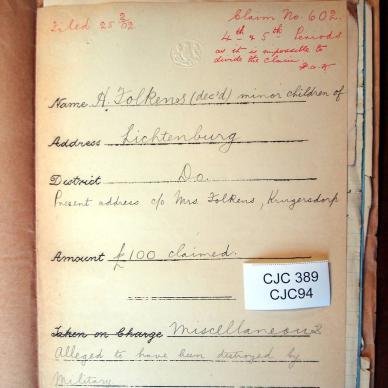 Filed 25 2/02
Claim No. 602.
4th & 5th Periods
as it is impossible to
divide the claim
Name H. Folkens (dec'd) minor children of
Address Lichtenburg
District Do.
Present address c/o Mrs. Folkens, Krugersdorp
Amount £100 claimed.
CJC 389
CJC94
Taken on Charge Miscellaneous
Alleged to have been destroyed by
Military